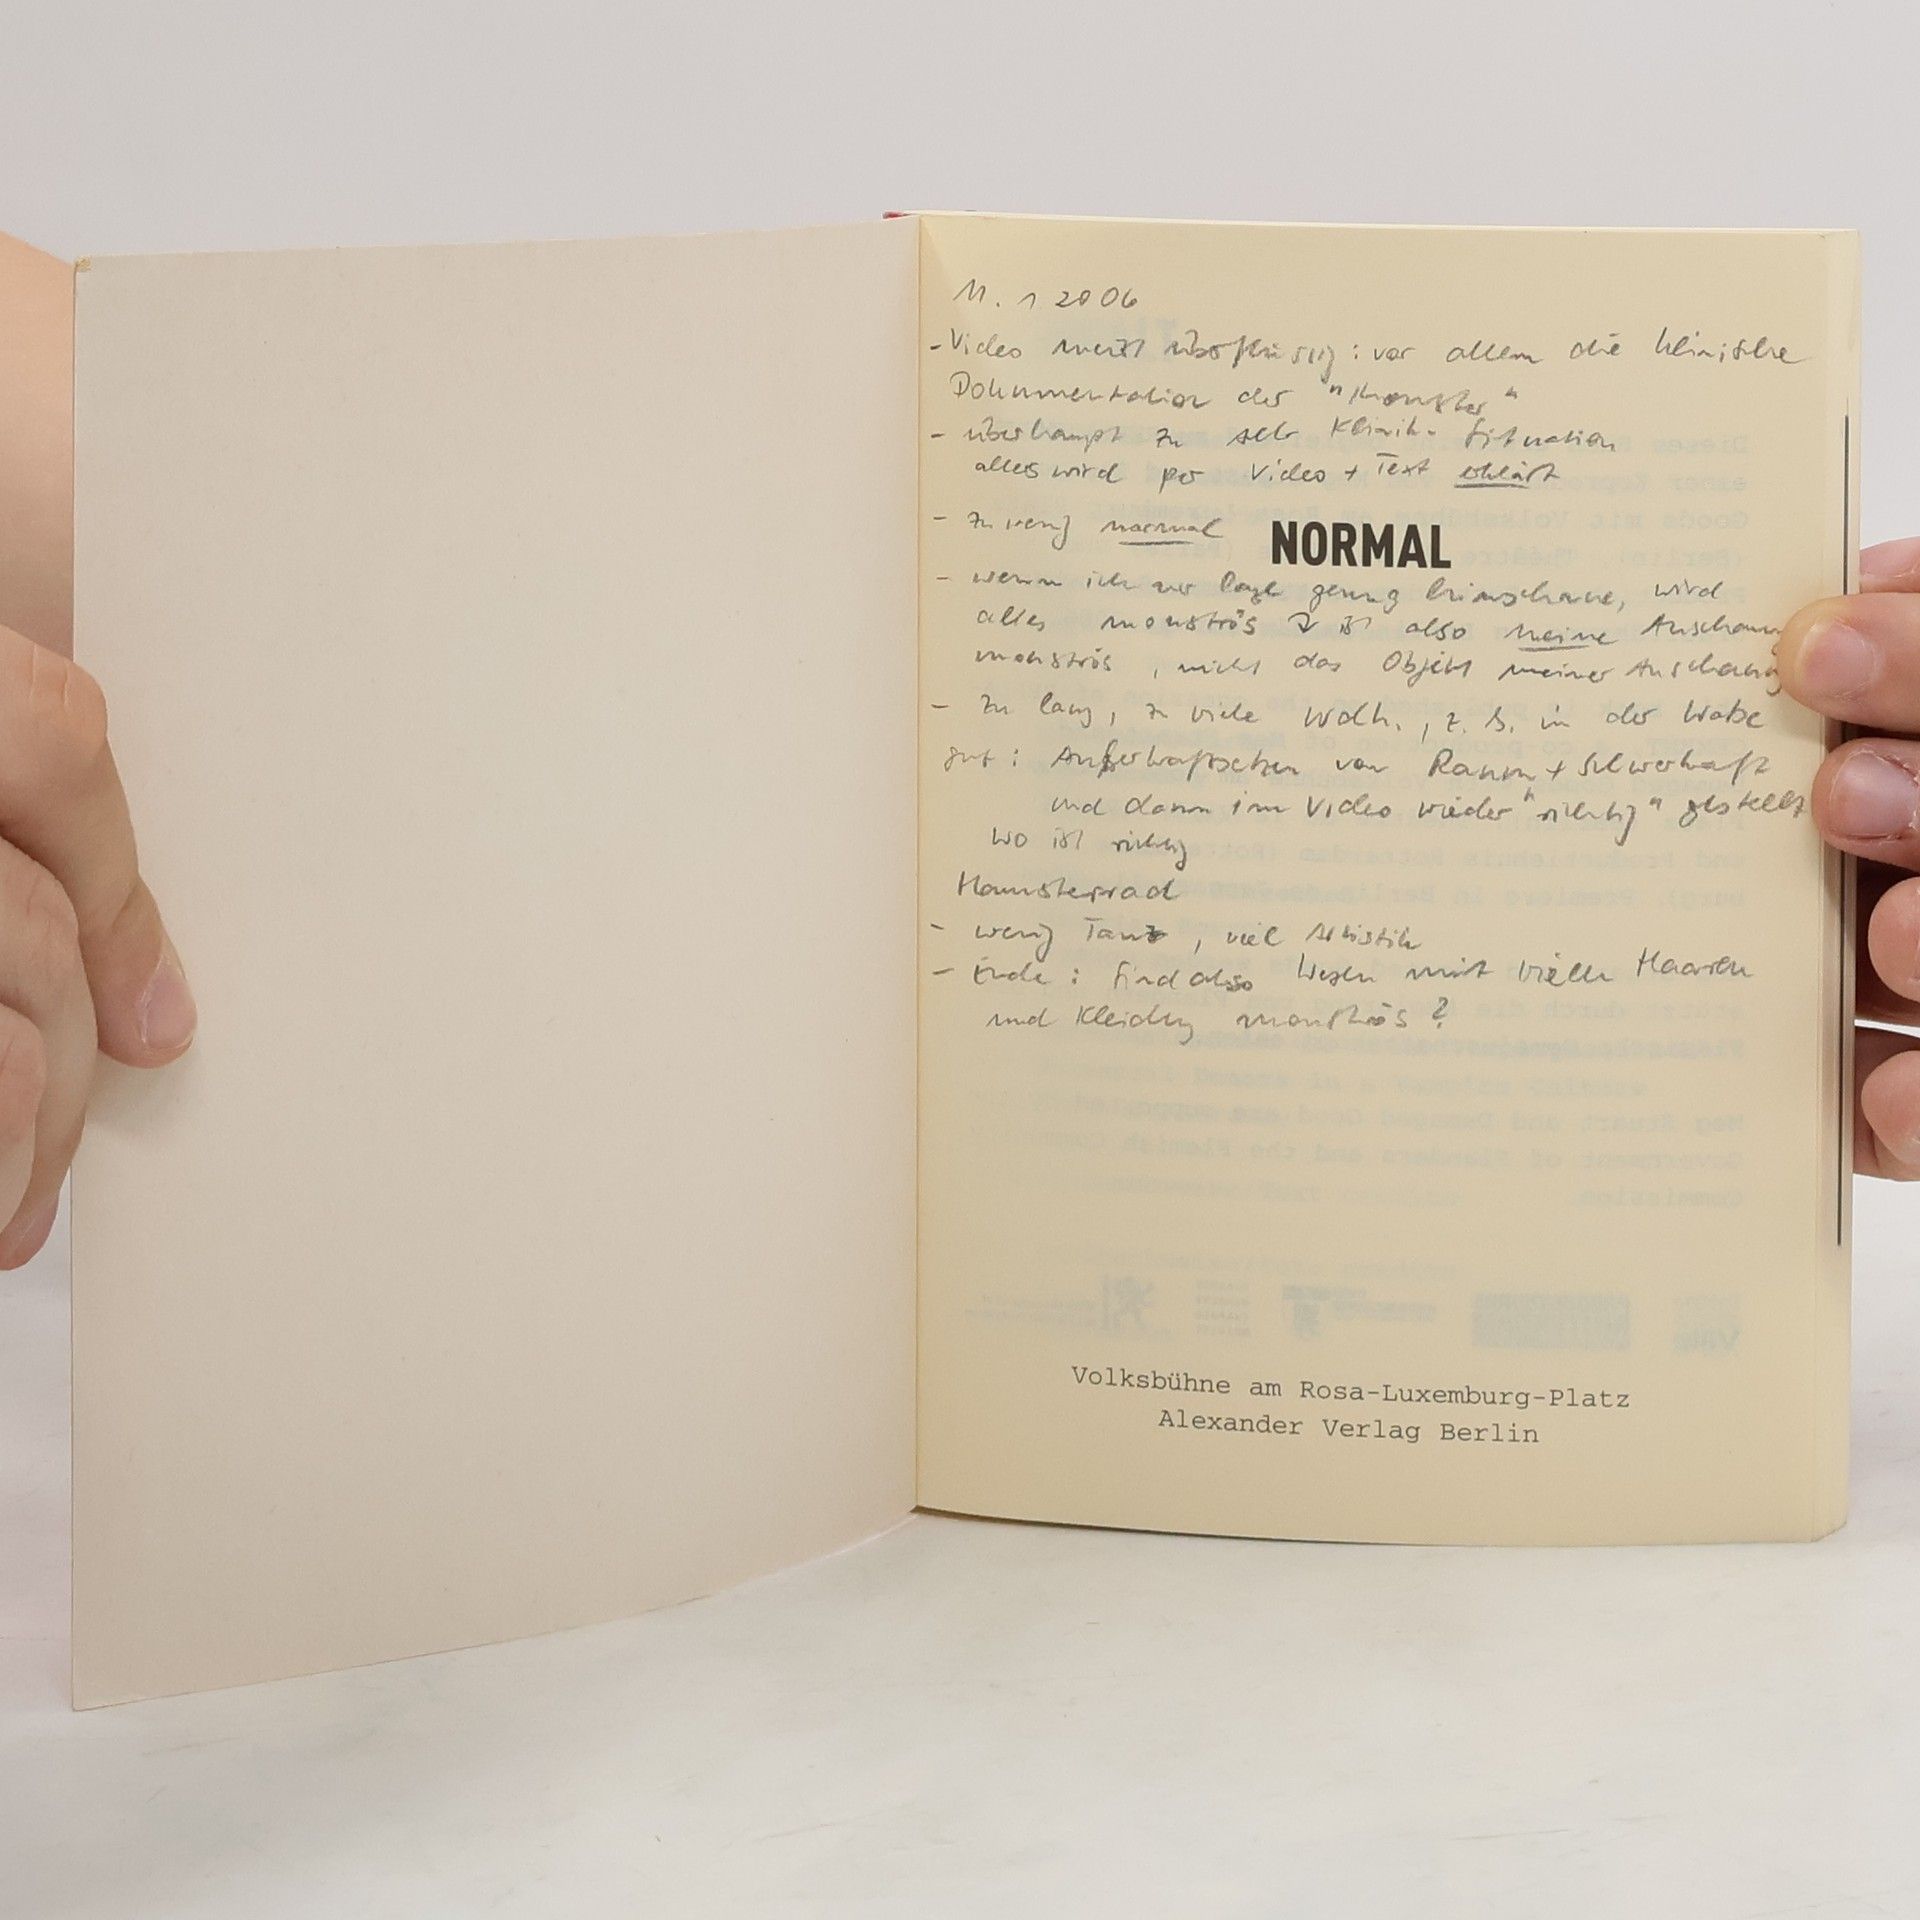 11. 1 2006
- Video meist überflüssig: vor allem die klinische
Dokumentation der "Monster"
- überhaupt zu sehr Klinik-Situation
alles wird per Video + Text erklärt
- zu wenig normal
NORMAL
- wenn ich nur lange genug hinschaue, wird
alles monströs ist also meine Anschauung
monströs, nicht das Objekt meiner Anschauung
- zu lang, zu viele Wdh., z. B. in der Wabe
gut: Außerkraftsetzen von Raum + Schwerkraft
und dann im Video wieder "richtig" gestellt
wo ist richtig
Hamsterrad
- wenig Tanz, viel Artistik
- Ende: Sind also Wesen mit vielen Haaren
und Kleidung monströs?
Volksbühne am Rosa-Luxemburg-Platz
Alexander Verlag Berlin